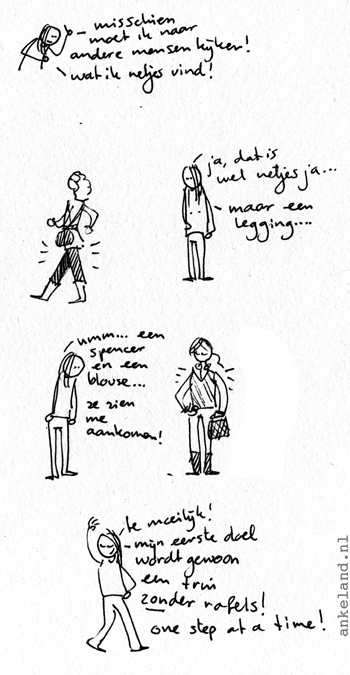 - misschien
- moet ik naar
andere mensen kijken!
wat ik netjes vind!
ja, dat is
wel netjes ja...
- maar een
legging....
umm... een
spencer
en een
blouse...
ze zien
me
aankomen!
te moeilijk!
- mijn eerste doel
wordt gewoon
een trui
zonder rafels!
one step at a time!
ankeland.nl